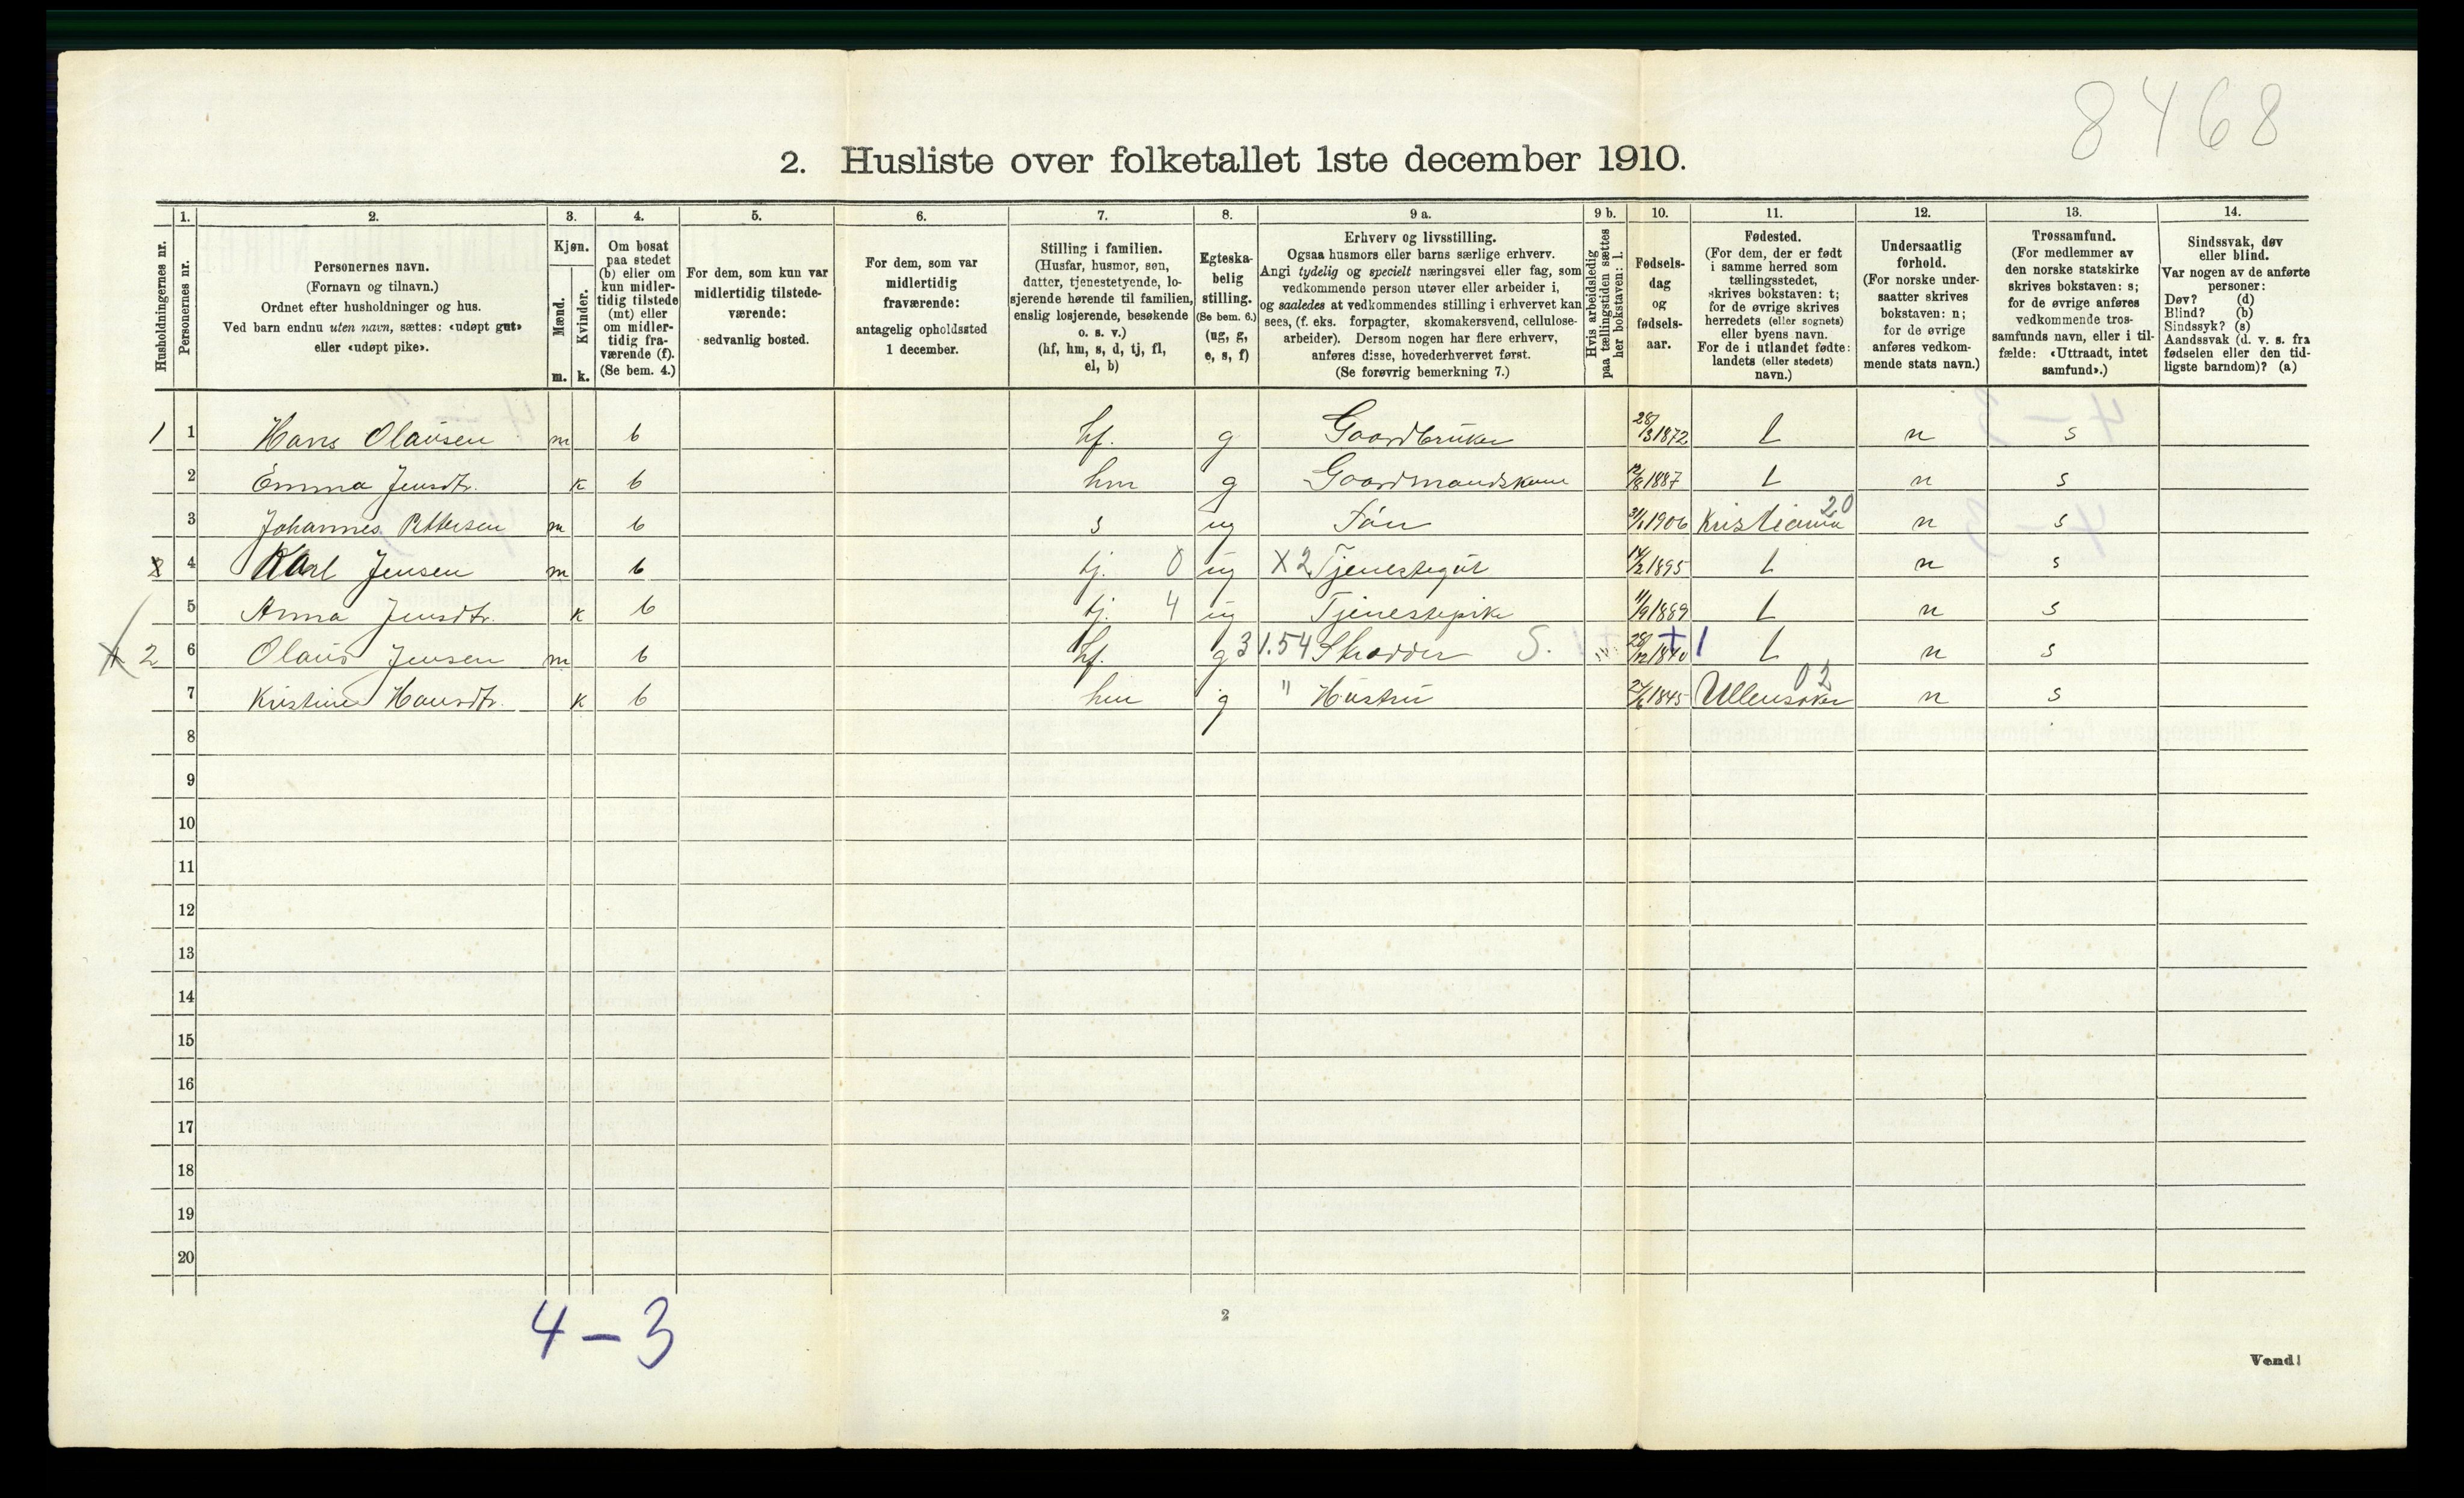 8468
2. Husliste over folketallet 1ste december 1910.
Husholdningernes nr.
1.
Personernes nr.
2.
Personernes navn.
(Fornavn og tilnavn.)
Ordnet efter husholdninger og hus.
Ved barn endnu uten navn, sættes: «udøpt gut»
eller «udøpt pike».
3.
Kjøn.
Mænd.
Kvinder.
m. k.
4.
Om bosat
paa stedet
(b) eller om
kun midler-
tidig tilstede
(mt) eller
om midler-
tidig fra-
værende (f).
(Se bem. 4.)
5.
For dem, som kun var
midlertidig tilstede-
værende:
sedvanlig bosted.
6.
For dem, som var
midlertidig
fraværende:
antagelig opholdssted
1 december.
7.
Stilling i familien.
(Husfar, husmor, søn,
datter, tjenestetyende, lo-
sjerende hørende til familien,
enslig losjerende, besøkende
o. s. v.)
(hf, hm, s, d, tj, fl,
el, b)
8.
Egteska-
belig
stilling.
(Se bem. 6.)
(ug, g,
e, s, f)
9 a.
Erhverv og livsstilling.
Ogsaa husmors eller barns særlige erhverv.
Angi tydelig og specielt næringsvei eller fag, som
vedkommende person utøver eller arbeider i,
og saaledes at vedkommendes stilling i erhvervet kan
sees, (f. eks. forpagter, skomakersvend, cellulose-
arbeider). Dersom nogen har flere erhverv,
anføres disse, hovederhvervet først.
(Se forøvrig bemerkning 7.)
9 b.
Hvis arbeidsledig
paa tællingstiden sættes
her bokstaven: l.
10.
Fødsels-
dag
og
fødsels-
aar.
11.
Fødested.
(For dem, der er født
i samme herred som
tællingsstedet,
skrives bokstaven: t;
for de øvrige skrives
herredets (eller sognets)
eller byens navn.
For de i utlandet fødte:
landets (eller stedets)
navn.)
12.
Undersaatlig
forhold.
(For norske under-
saatter skrives
bokstaven: n;
for de øvrige
anføres vedkom-
mende stats navn.)
13.
Trossamfund.
(For medlemmer av
den norske statskirke
skrives bokstaven: s;
for de øvrige anføres
vedkommende tros-
samfunds navn, eller i til-
fælde: «Uttraadt, intet
samfund».)
14.
Sindssvak, døv
eller blind.
Var nogen av de anførte
personer:
Døv? (d)
Blind? (b)
Sindssyk? (s)
Aandssvak (d. v. s. fra
fødselen eller den tid-
ligste barndom)? (a)
1 1 Hans Olausen m b hf. g Gaardbruker 28/3 1872 t n s
2 Emma Jensdtr. k b hm g Gaardmandskone 12/8 1887 t n s
3 Johannes Pettersen m b s ug Søn 31/1 1906 Kristiania 20 n s
4 Karl Jensen m b tj. 0 ug X2 Tjenestegut 14/2 1895 t n s
5 Anna Jensdtr. k b tj. 4 ug Tjenestepike 11/9 1889 t n s
X 2 6 Olaus Jensen m b hf. g 31.54 Skrædder S. 28/12 1840 +1 t n s
7 Kristine Hansdtr. k b hm g " Hustru 27/6 1845 Ullensaker 02 n s
8
9
10
11
12
13
14
15
16
17
18
19
20
4 - 3
2
Vend!